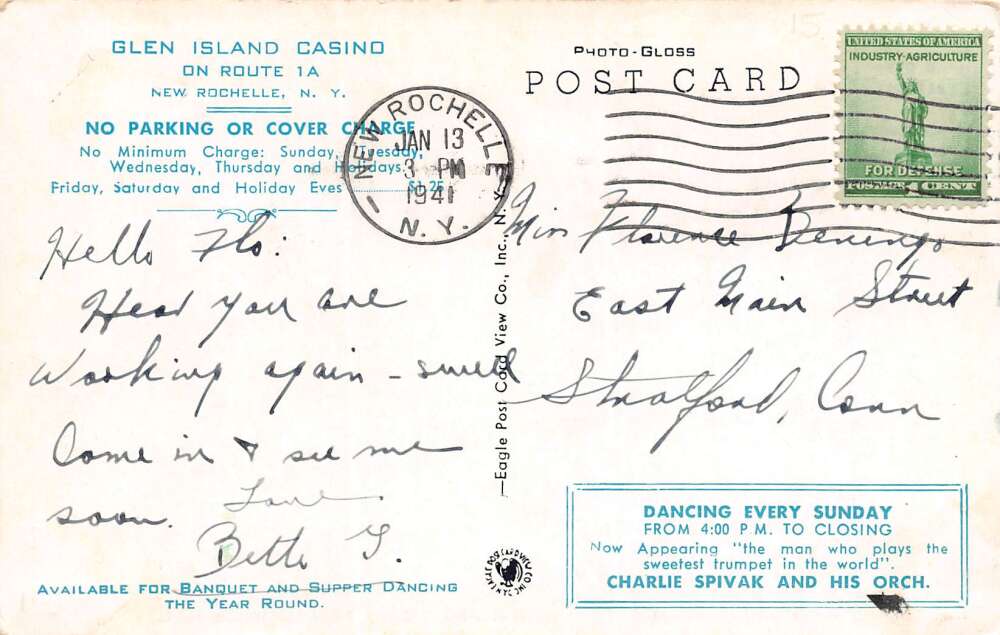 GLEN ISLAND CASINO
ON ROUTE 1A
NEW ROCHELLE, N. Y.
NO PARKING OR COVER CHARGE
No Minimum Charge: Sunday, Tuesday,
Wednesday, Thursday and Holidays.
Friday, Saturday and Holiday Eves ......... $1.25
Hello Flo:
Hear you are
working again - swell
Come in & see me
soon.
Love
Bette G.
AVAILABLE FOR BANQUET AND SUPPER DANCING
THE YEAR ROUND.
NEW ROCHELLE
JAN 13
3 PM
1941
N. Y.
—Eagle Post Card View Co., Inc., N. Y.—
PHOTO-GLOSS
POST CARD
15
UNITED STATES OF AMERICA
INDUSTRY-AGRICULTURE
FOR DEFENSE
POSTAGE 1 CENT
Miss Florence
East Main Street
Stratford, Conn
DANCING EVERY SUNDAY
FROM 4:00 P.M. TO CLOSING
Now Appearing "the man who plays the
sweetest trumpet in the world".
CHARLIE SPIVAK AND HIS ORCH.